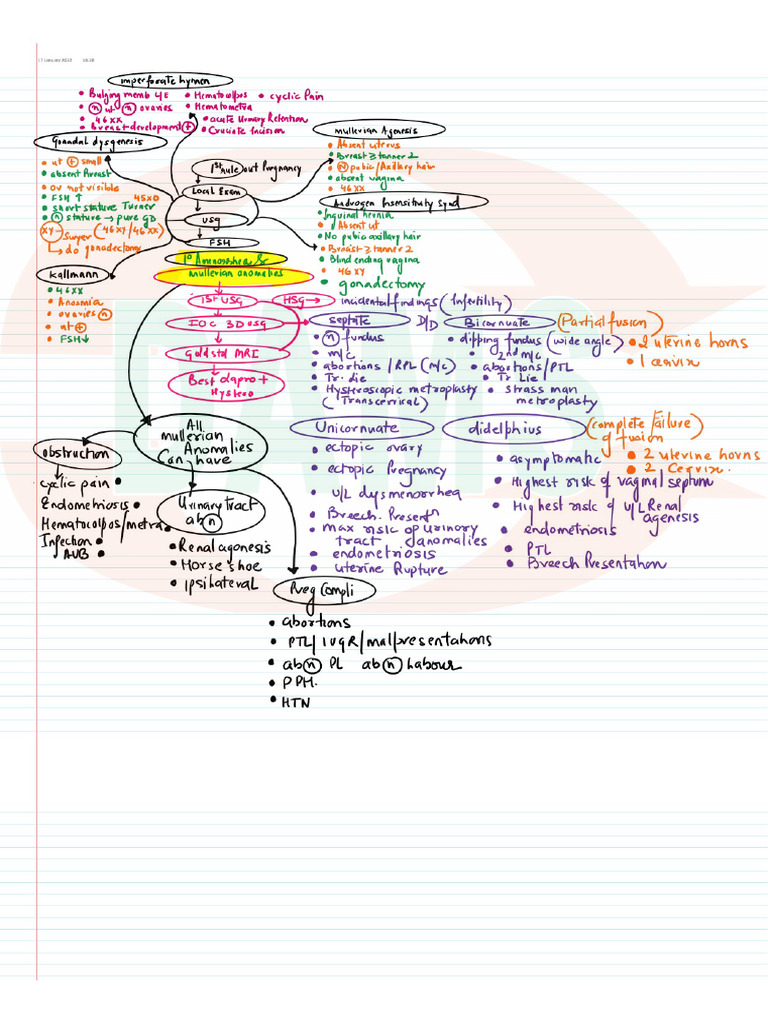 imperforate hymen
• Bulging memb LE • Hematocolpos • cyclic Pain
• (n) ut (n) ovaries • Hematometra
• 46XX • acute Urinary Retention
• breast development (+) • Cruciate Incision
Gonadal dysgenesis
• ut (+) small
• absent breast
• ov not visible
• FSH ↑ 45XO
• short stature Turner
• (n) stature → pure GD
XY → Swyer (46XY/46XX)
↳ do gonadectomy
Kallmann
• 46XX
• Anosmia
• ovaries (n)
• ut (+)
• FSH ↓
1st rule out Pregnancy
Local Exam
USG
FSH
Mullerian Agenesis
• Absent uterus
• Breast ≥ tanner 2
• (N) pubic/Axillary hair
• absent vagina
• 46XX
Androgen Insensitivity Synd
• Inguinal hernia
• Absent ut
• No pubic axillary hair
• Breast ≥ tanner 2
• Blind ending vagina
• 46XY
• gonadectomy
1° Amenorrhea &
mullerian anomalies
1st USG
HSG → incidental findings (Infertility)
IOC 3D USG
Gold std MRI
Best Lapro +
Hystero
septate D/D Bicornuate (Partial fusion)
• (n) fundus
• m/c
• abortions / RPL (M/C)
• Tr. die
• Hysteroscopic metroplasty
(Transcervical)
• dipping fundus (wide angle)
• 2nd m/c
• abortions/PTL
• Tr Lie
• strass man
metroplasty
• 2 uterine horns
• 1 cervix
Unicornuate
• ectopic ovary
• ectopic Pregnancy
• U/L dysmenorrhea
• Breech Present(n)
• max risk of urinary
tract anomalies
• endometriosis
• uterine Rupture
didelphius (complete failure
of fusion)
• 2 uterine horns
• 2 Cervix.
• asymptomatic
• Highest risk of vaginal septum
• Highest risk of U/L Renal
agenesis
• endometriosis
• PTL
• Breech Presentation
All
mullerian
Anomalies
Can have
obstruction
cyclic pain •
Endometriosis •
Hematocolpos/metra •
Infection •
AUB •
Urinary tract
ab(n)
• Renal agenesis
• Horse shoe
• Ipsilateral
Preg Compli
• abortions
• PTL/IUGR/malpresentations
• ab(n) PL ab(n) Labour
• PPH.
• HTN